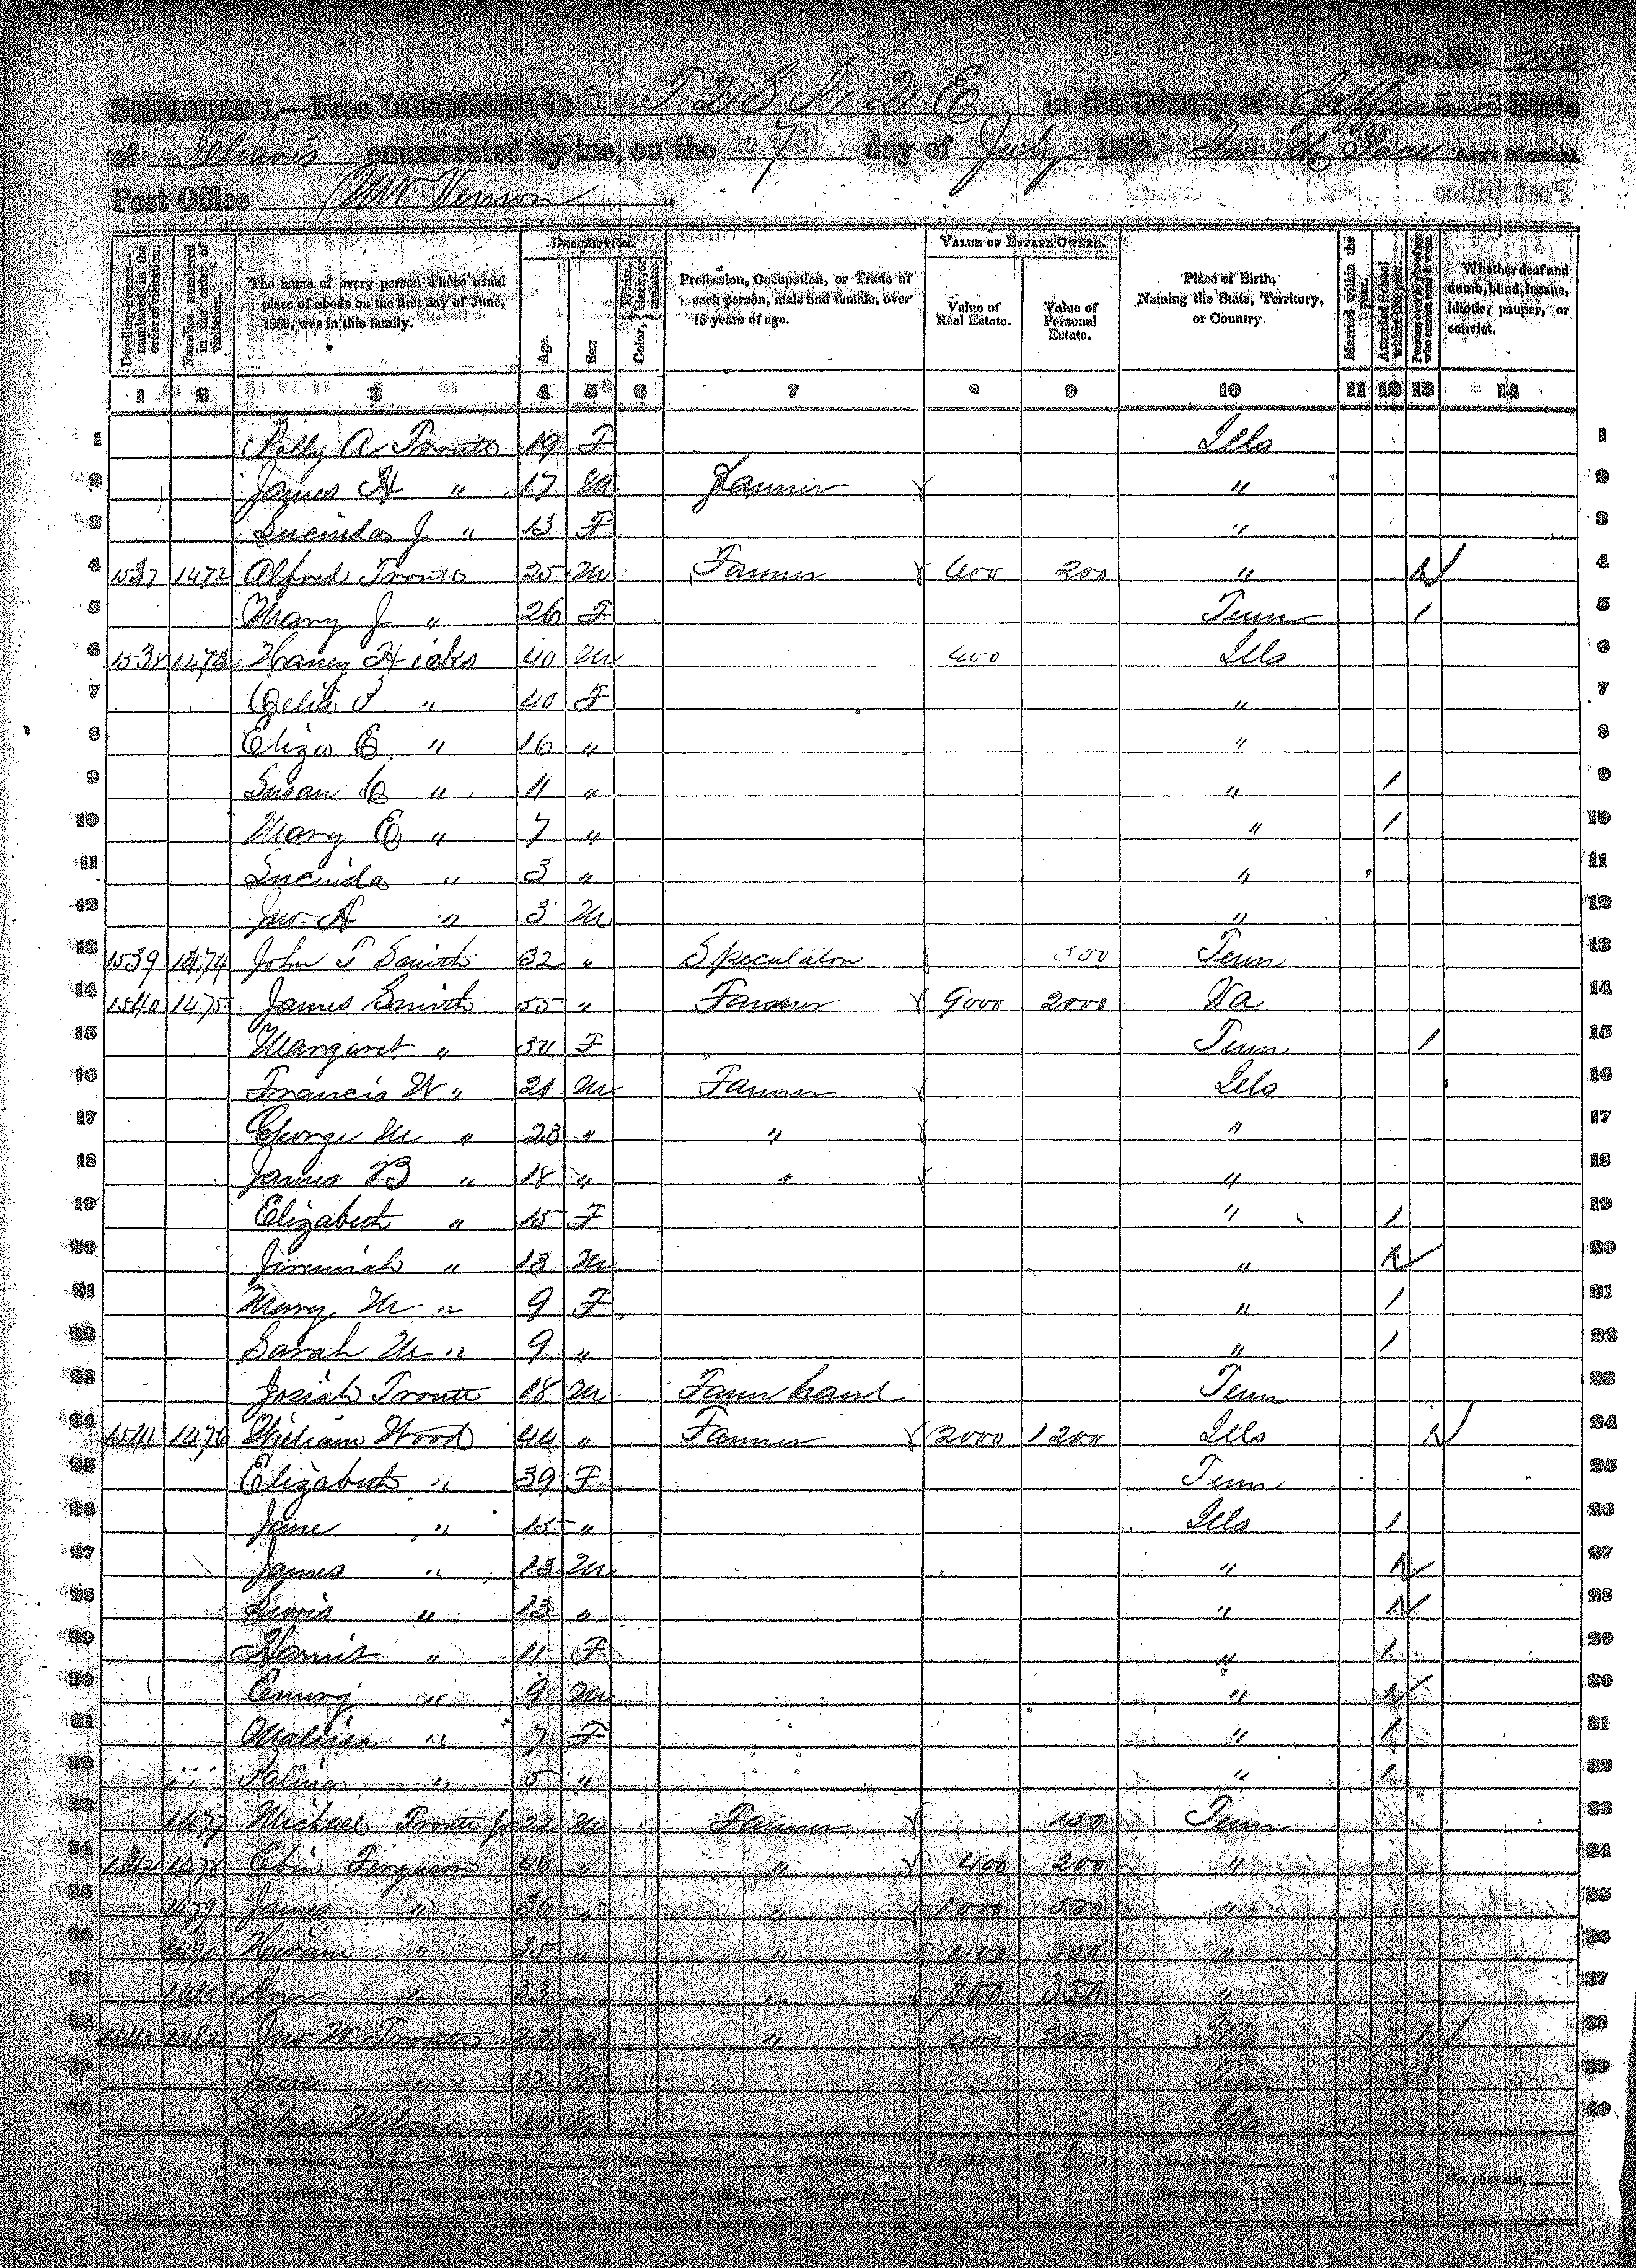 Page No. 242
SCHEDULE 1.—Free Inhabitants in T 2 S R 2 E in the County of Jefferson State
of Illinois enumerated by me, on the 7 day of July 1860. Pace Ass't Marshal.
Post Office Mt Vernon.
Dwelling-houses— numbered in the order of visitation.
Families numbered in the order of visitation.
The name of every person whose usual place of abode on the first day of June, 1860, was in this family.
DESCRIPTION.
Age.
Sex
Color, { White, black, or mulatto
Profession, Occupation, or Trade of each person, male and female, over 15 years of age.
VALUE OF ESTATE OWNED.
Value of Real Estate.
Value of Personal Estate.
Place of Birth, Naming the State, Territory, or Country.
Married within the year.
Attended School within the year.
Persons over 20 y'rs of age who cannot read & write.
Whether deaf and dumb, blind, insane, idiotic, pauper, or convict.
1 2 3 4 5 6 7 8 9 10 11 12 13 14
1 Polly A Troutt 19 F Ills 1
2 James H " 17 M Farmer " 2
3 Lucinda J " 13 F " 3
4 1537 1472 Alfred Troutt 25 M Farmer 400 200 " 1 4
5 Mary J " 26 F Tenn 1 5
6 1538 1473 Hicks 40 M 400 Ills 6
7 Celia " 40 F " 7
8 Eliza E " 16 " " 8
9 Susan C " 11 " " 1 9
10 Mary E " 7 " " 1 10
11 Lucinda " 3 " " 11
12 Jno H " 3 M " 12
13 1539 1474 John T Smith 32 " Speculator 500 Tenn 13
14 1540 1475 James Smith 55 " Farmer 9000 2000 Va 14
15 Margaret " F Tenn 1 15
16 Francis W " 21 M Farmer Ills 16
17 George M " 23 " " " 17
18 James B " 18 " " " 18
19 Elizabeth " 15 F " 1 19
20 Jeremiah " 13 M " 1 20
21 Mary M " 9 F " 1 21
22 Sarah M " 9 " " 1 22
23 Josiah Troutt 18 M Farm hand Tenn 23
24 1541 1476 William Wood 44 " Farmer 1200 Ills 1 24
25 Elizabeth " 39 F Tenn 25
26 Jane " 15 " Ills 1 26
27 James " 13 M " 1 27
28 Lewis " 13 " " 1 28
29 Harriet " 11 F " 1 29
30 Emery " 9 M " 1 30
31 Malissa " 7 F " 1 31
32 " 5 " " 1 32
33 1477 Michael Troutt Jr 22 M Farmer Tenn 33
34 1542 1478 Ferguson 46 " " 400 200 " 34
35 1479 James " 36 " " 1000 500 " 35
36 Hiram " 35 " " 400 350 " 36
37 1481 " 33 " " 400 350 " 37
38 1543 1482 Jno W Troutt 22 M " 400 200 Ills 1 38
39 Jane " F Tenn 39
40 Silas 14 M Ills 40
No. white males, 22 No. colored males, No. foreign born, No. blind, 14,600 5,650 No. idiotic,
No. white females, 18 No. colored females, No. deaf and dumb, No. insane, No. paupers, No. convicts,